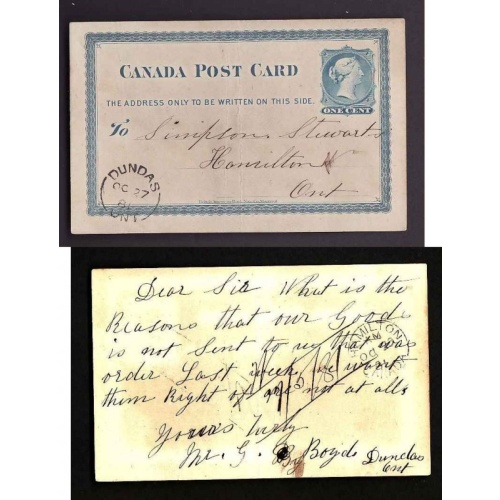 CANADA POST CARD
ONE CENT
THE ADDRESS ONLY TO BE WRITTEN ON THIS SIDE.
To Simpson Stewart
Hamilton
Ont
DUNDAS
OC 27
81
ONT
Dear Sir What is the
Reasons that our Goods
is not Sent to us that was
order Last week we want
them Right of are not at all
Yours Truly
Mr. G. Boyds Dundas
Ont
HAMILTON